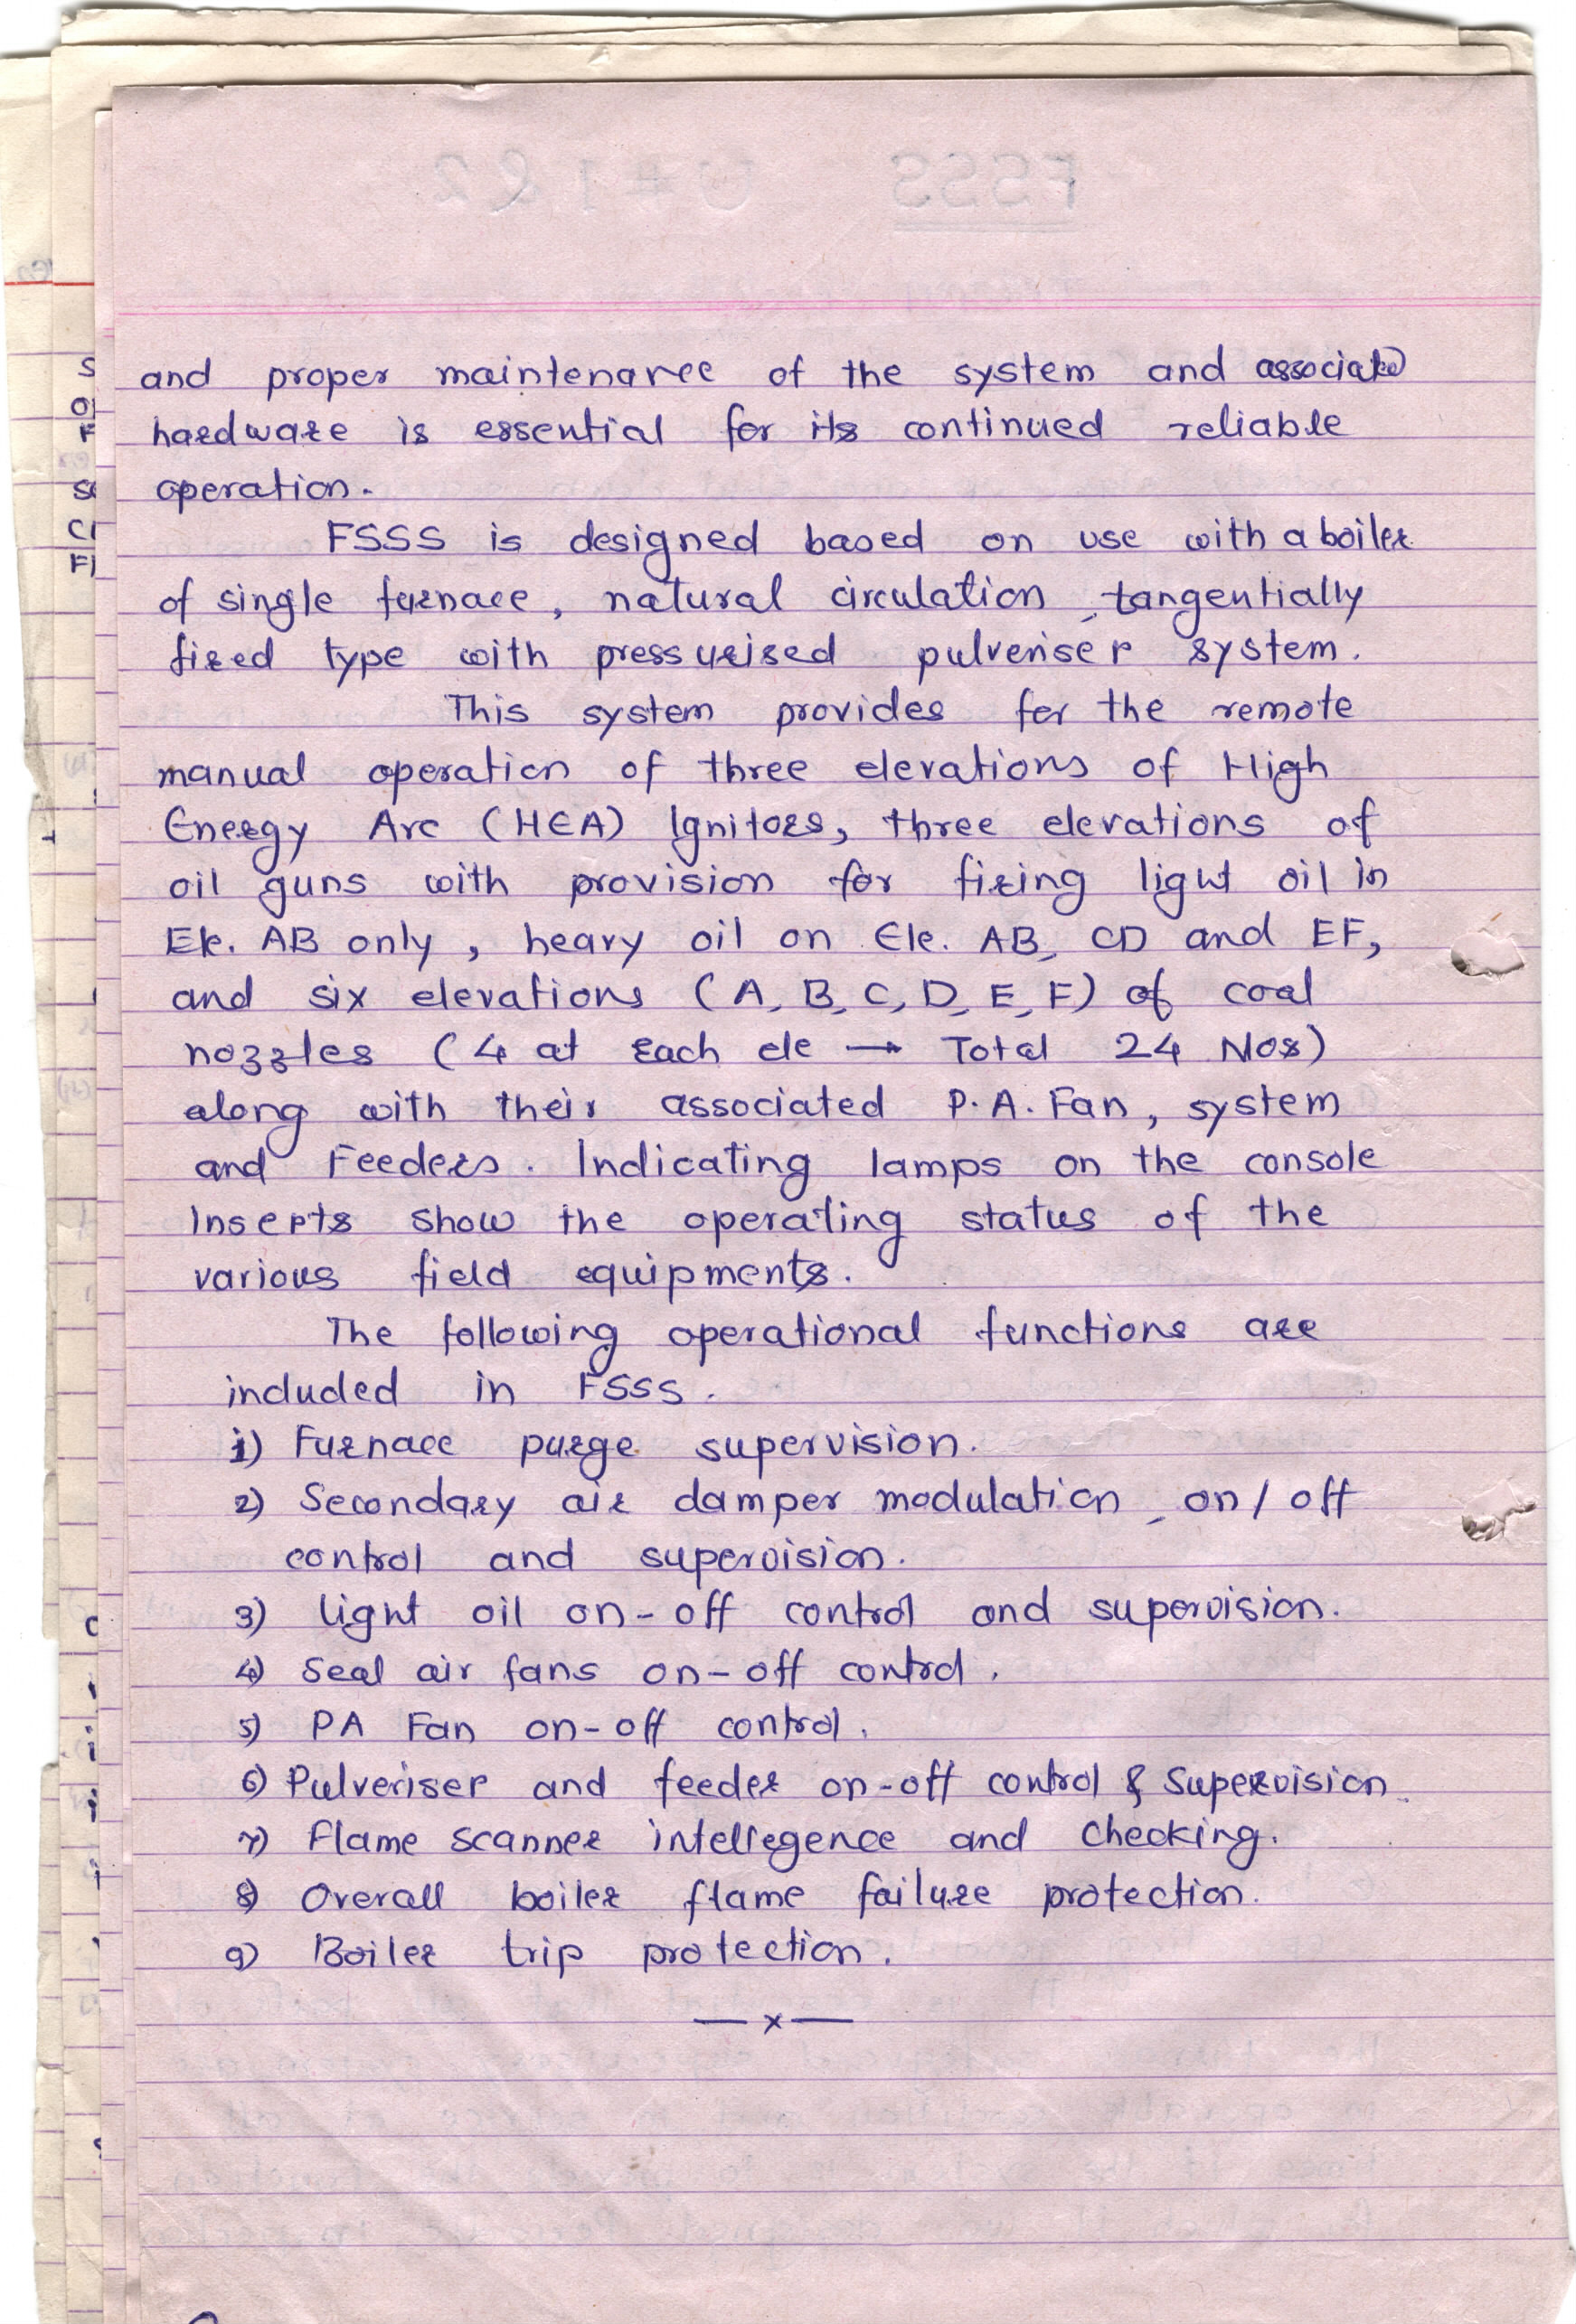 and proper maintenance of the system and associated
hardware is essential for its continued reliable
operation.
FSSS is designed based on use with a boiler
of single furnace, natural circulation, tangentially
fired type with pressurised pulveriser system.
This system provides for the remote
manual operation of three elevations of High
Energy Arc (HEA) Ignitors, three elevations of
oil guns with provision for firing light oil in
Ele. AB only, heavy oil on Ele. AB, CD and EF,
and six elevations (A, B, C, D, E, F) of coal
nozzles (4 at Each ele → Total 24 Nos)
along with their associated P.A. Fan, system
and Feeders. Indicating lamps on the console
Inserts show the operating status of the
various field equipments.
The following operational functions are
included in FSSS.
1) Furnace purge supervision.
2) Secondary air damper modulation, on/off
control and supervision.
3) light oil on-off control and supervision.
4) Seal air fans on-off control.
5) PA Fan on-off control.
6) Pulveriser and feeder on-off control & Supervision.
7) Flame scanner intellegence and checking.
8) Overall boiler flame failure protection.
9) Boiler trip protection.
— x —